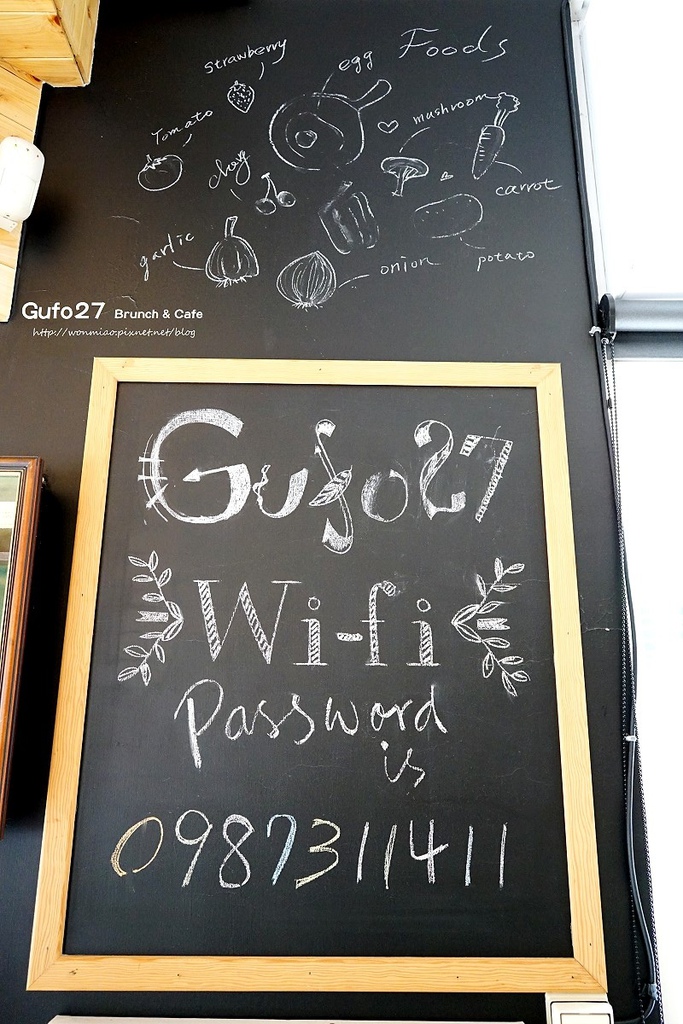 Foods
strawberry
egg
Tomato
mushroom
carrot
garlic
onion
potato
Gufo27 Brunch & Cafe
http://wonmiao.pixnet.net/blog
Gufo27
Wi-fi
Password
is
0987311411